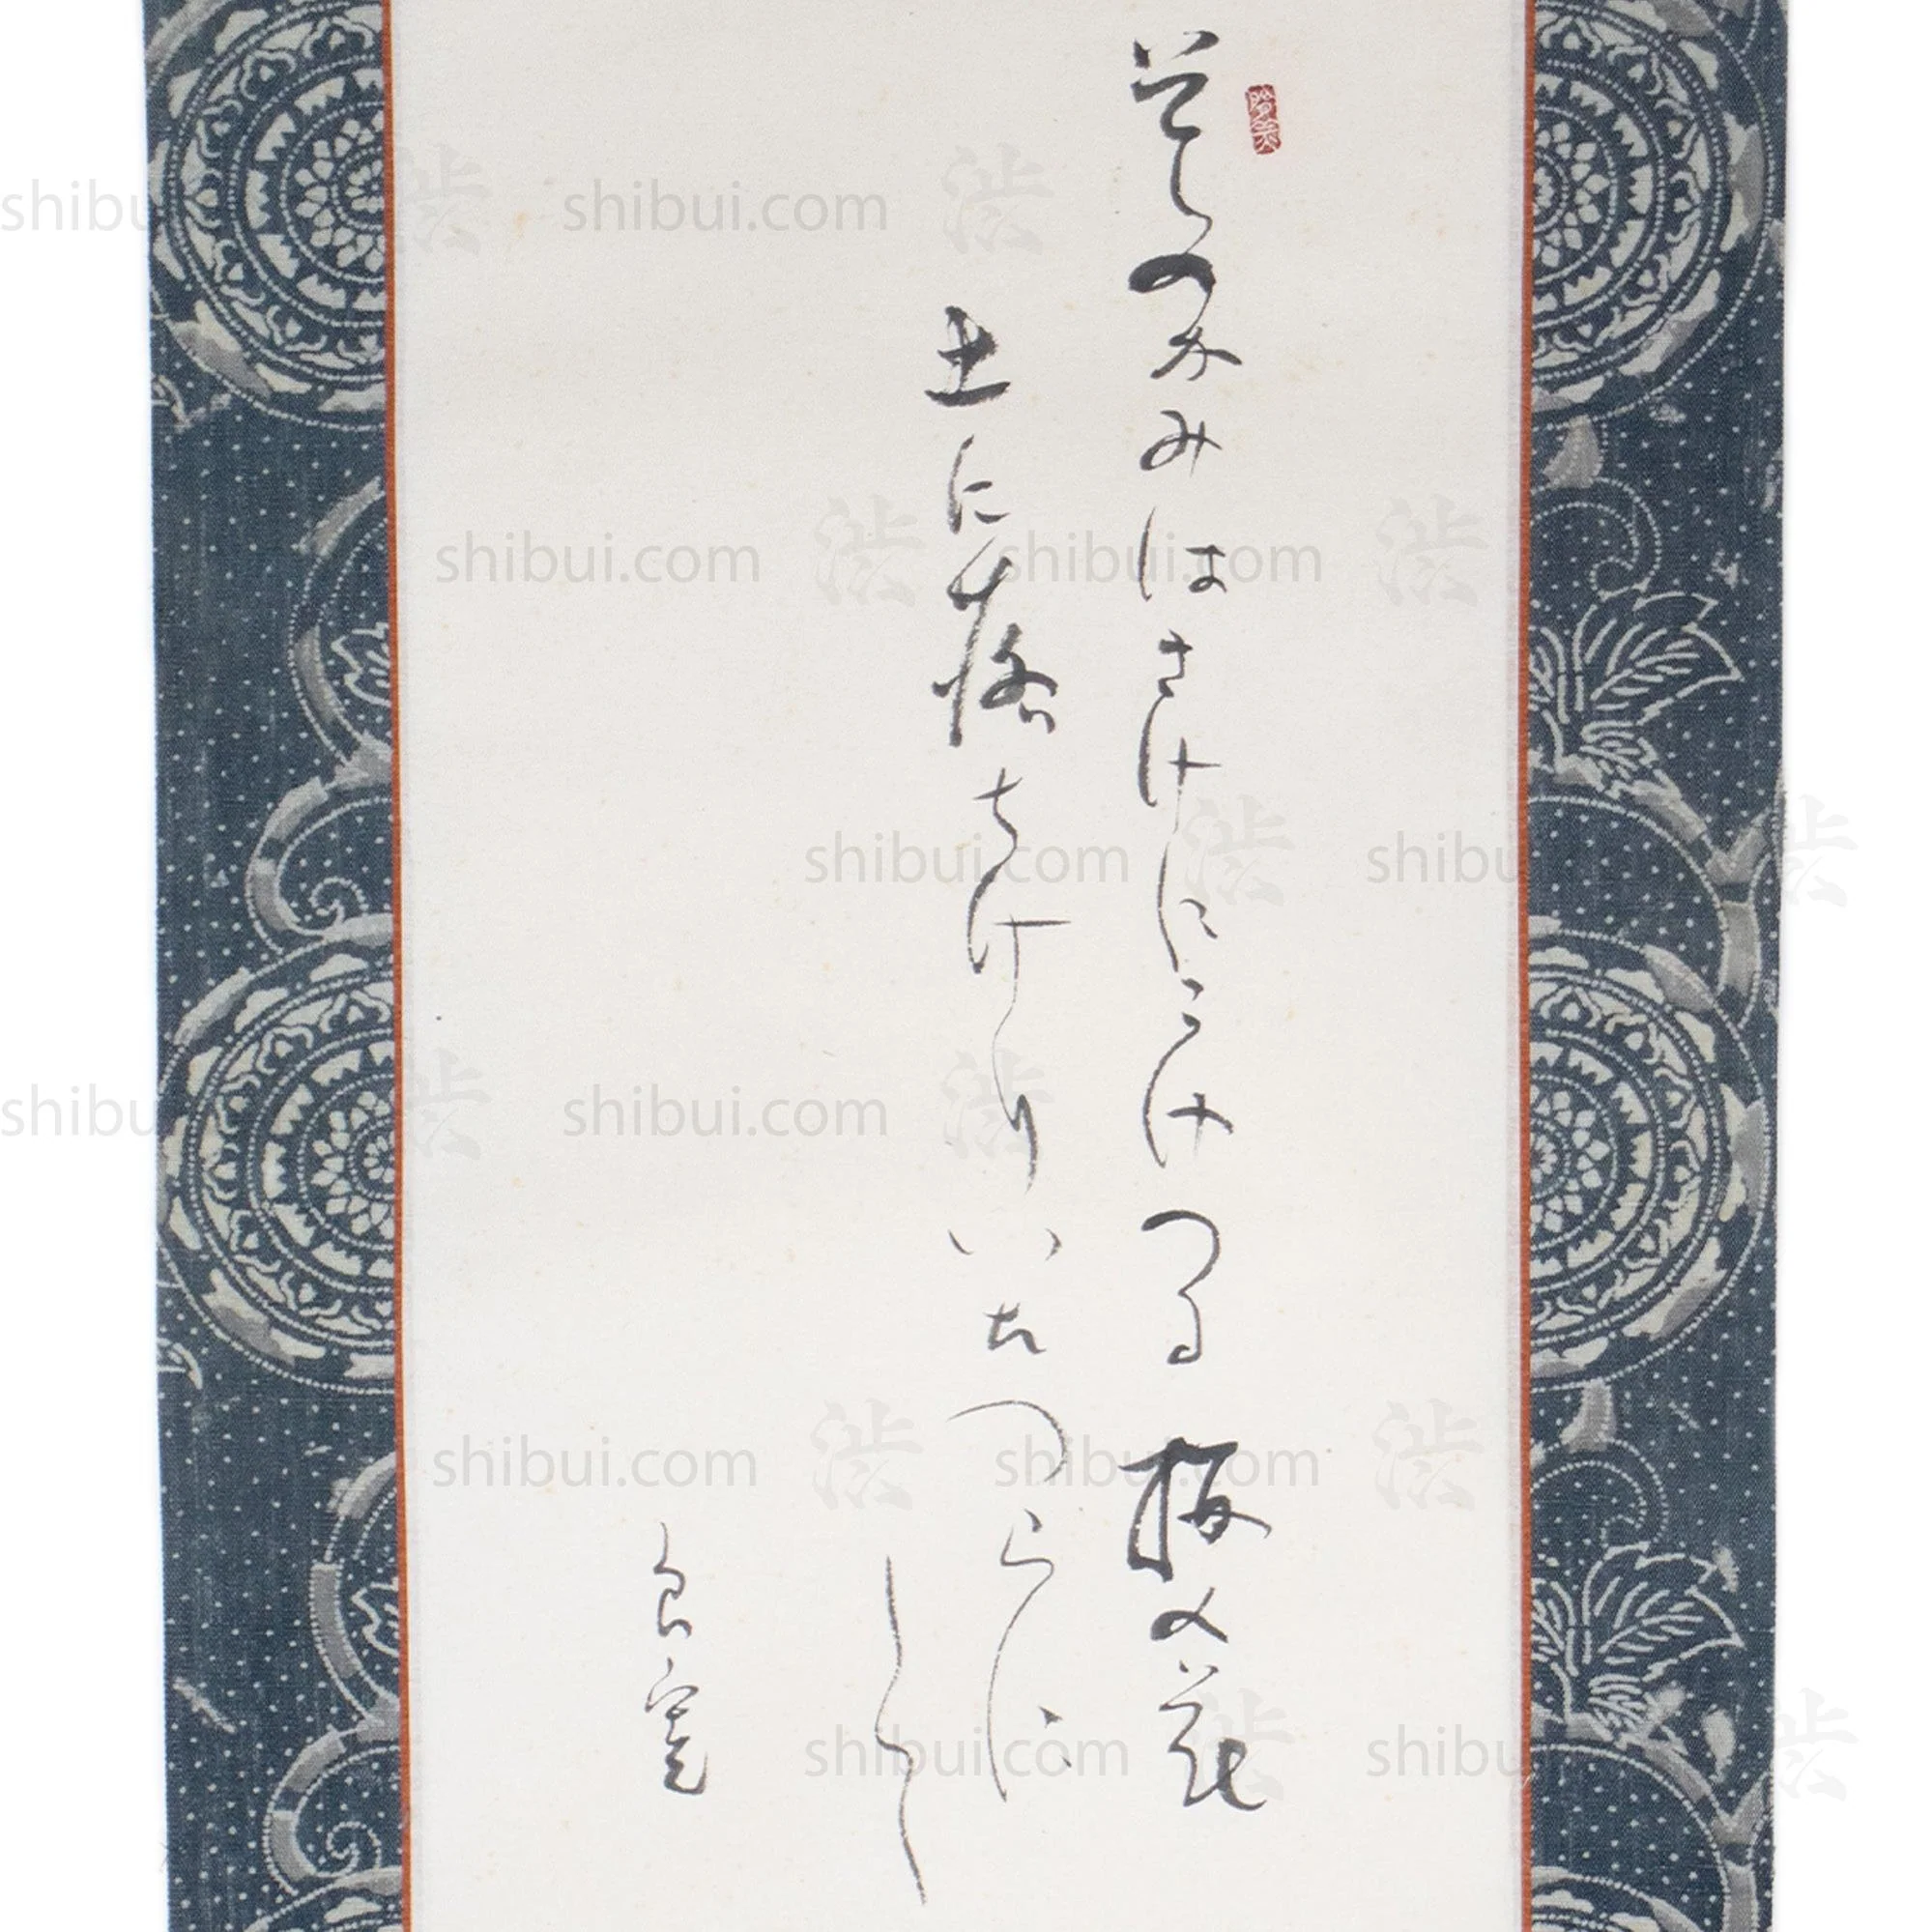 そのかみはさけにうけつる梅の花
土に落ちけりいたつらに
して
良寛
shibui.com 渋 shibui.com 渋
shibui.com 渋 shibui.com 渋
shibui.com 渋 shibui.com 渋
shibui.com 渋 shibui.com 渋
shibui.com 渋 shibui.com 渋
shibui.com 渋 shibui.com 渋